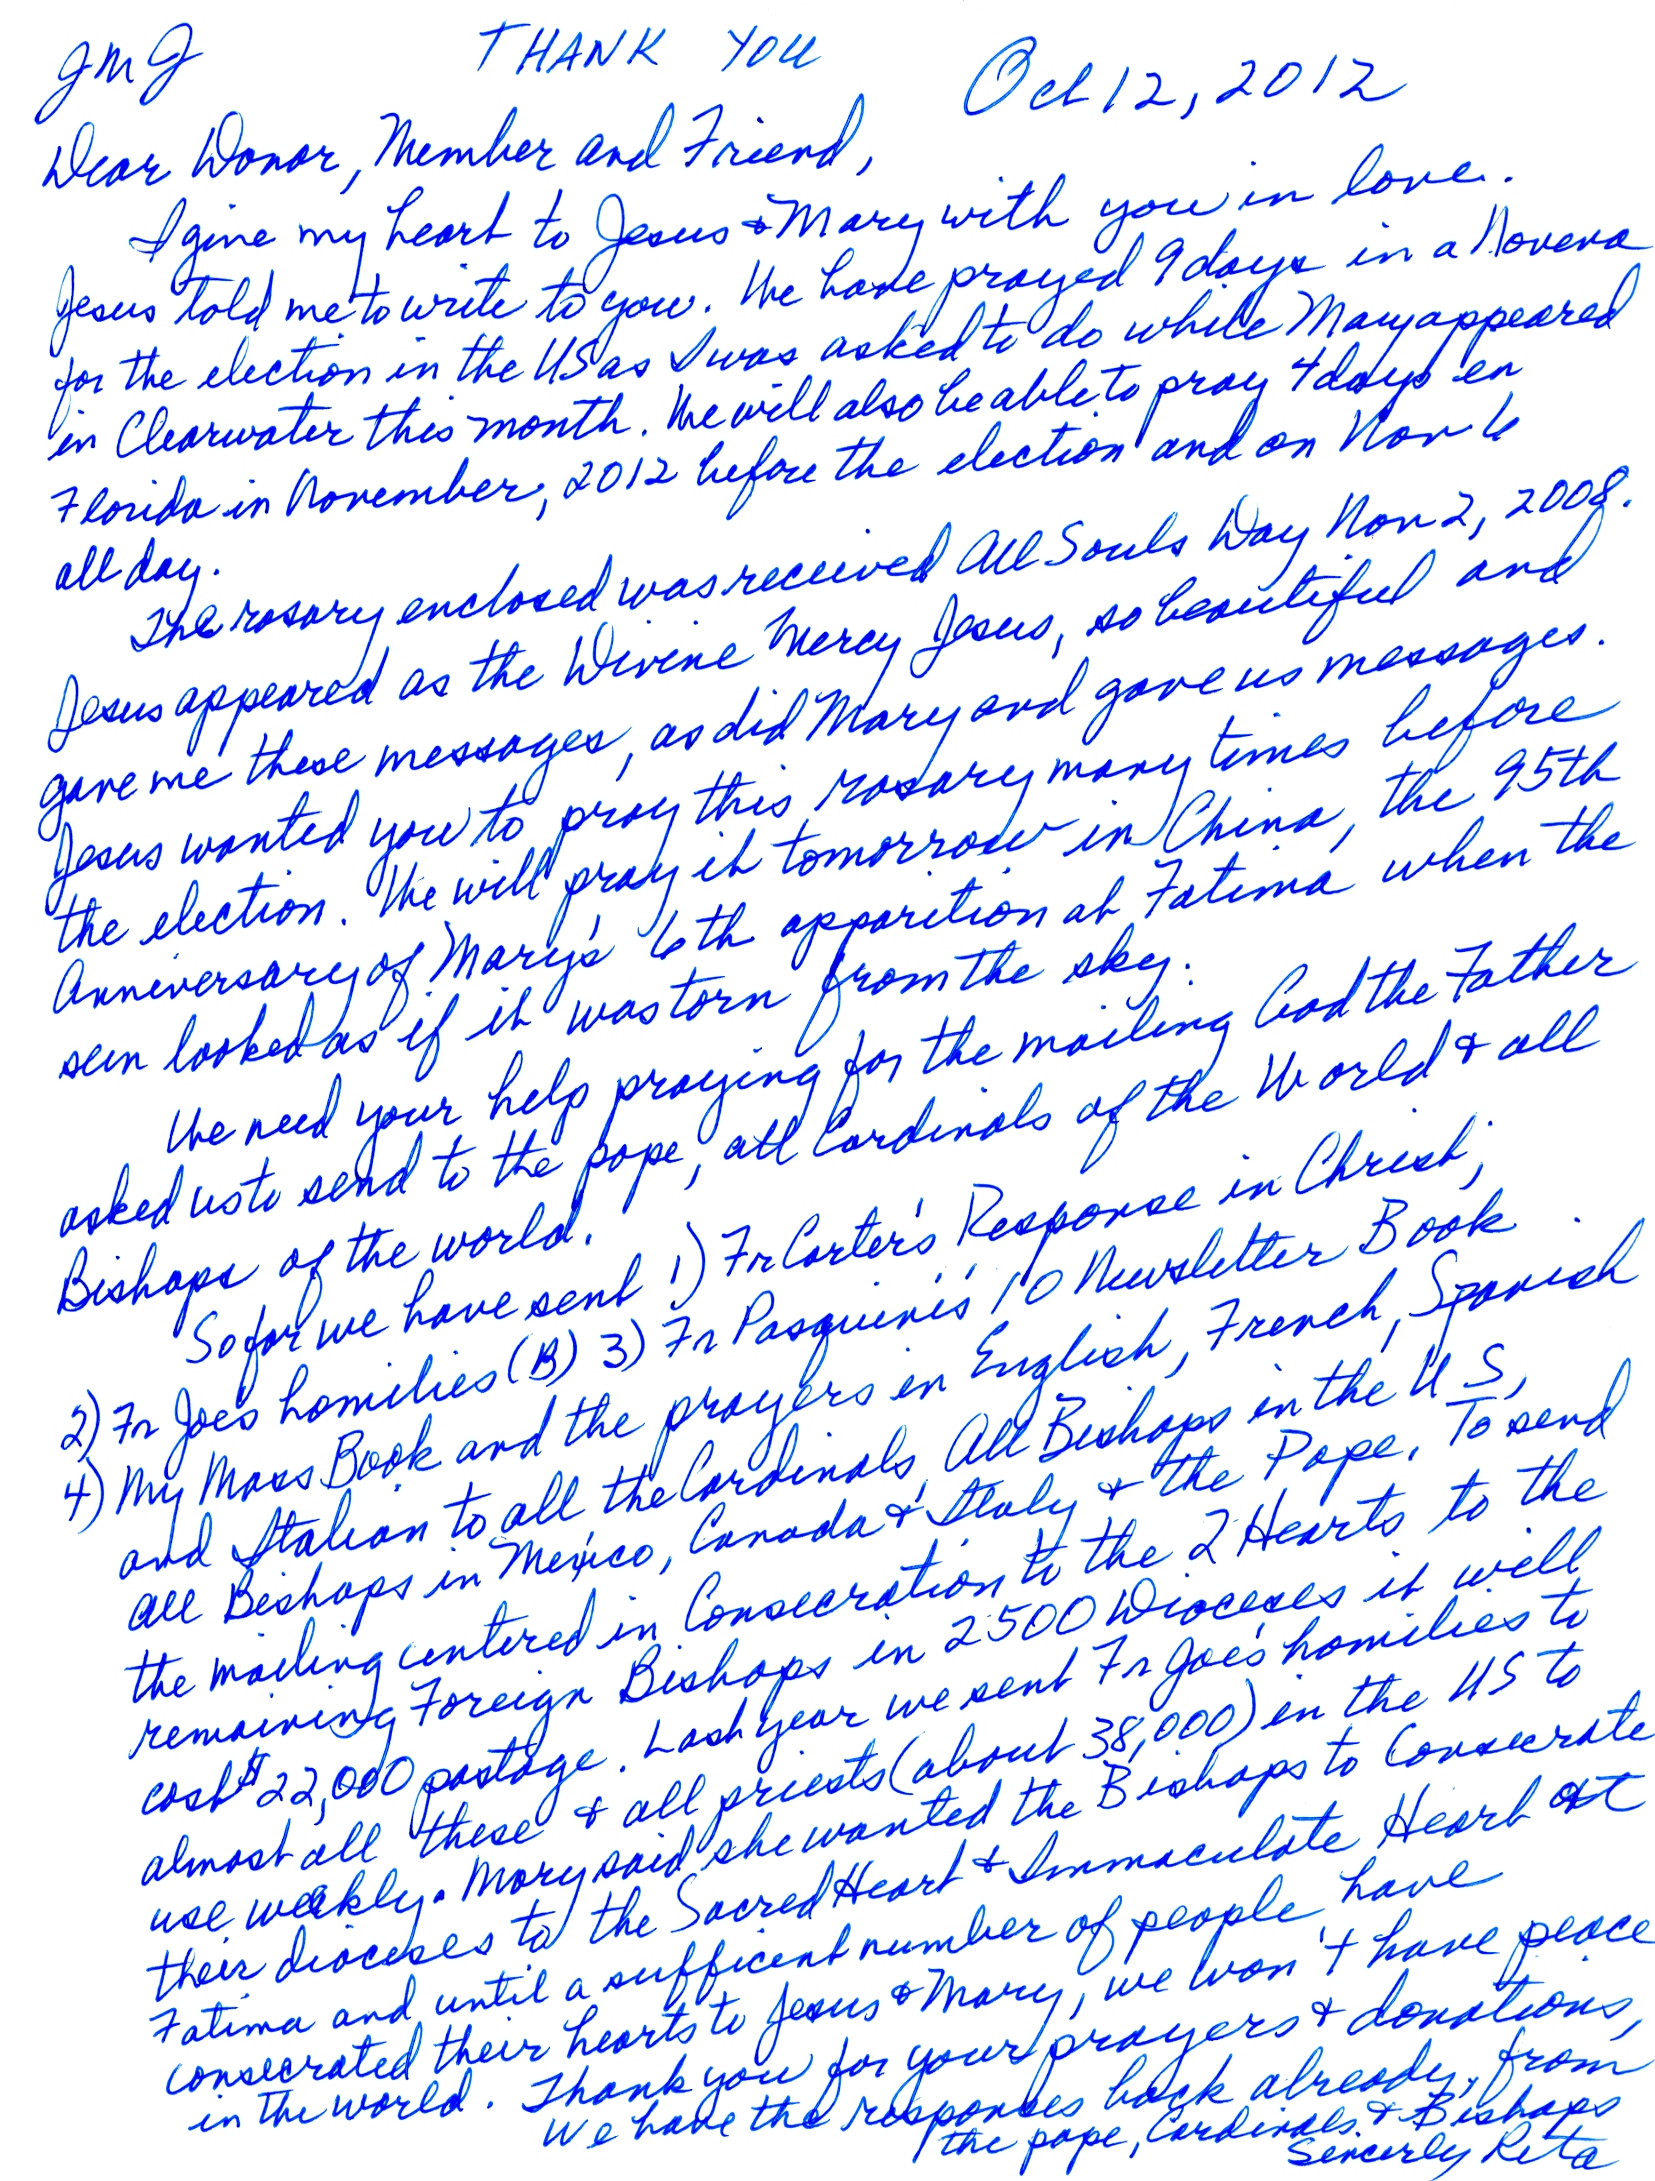 JMJ THANK YOU Oct 12, 2012
Dear Donor, Member and Friend,
I give my heart to Jesus & Mary with you in love.
Jesus told me to write to you. We have prayed 9 days in a Novena
for the election in the US as I was asked to do while Mary appeared
in Clearwater this month. We will also be able to pray 4 days in
Florida in November, 2012 before the election and on Nov 6
all day.
The rosary enclosed was received All Souls Day Nov 2, 2008.
Jesus appeared as the Divine Mercy Jesus, so beautiful and
gave me these messages, as did Mary and gave us messages.
Jesus wanted you to pray this rosary many times before
the election. We will pray it tomorrow in China, the 95th
Anniversary of Mary's 6th apparition at Fatima when the
sun looked as if it was torn from the sky.
We need your help praying for the mailing God the Father
asked us to send to the pope, all Cardinals of the World & all
Bishops of the world.
So far we have sent 1) Fr Carter's Response in Christ,
2) Fr Joe's homilies (B) 3) Fr Pasquini's 10 Newsletter Book
4) My Mass Book and the prayers in English, French, Spanish
and Italian to all the Cardinals, All Bishops in the U S,
all Bishops in Mexico, Canada & Italy & the Pope. To send
the mailing centered in Consecration to the 2 Hearts to the
remaining Foreign Bishops in 2500 Dioceses it will
cost $22,000 postage. Last year we sent Fr Joe's homilies to
almost all these & all priests (about 38,000) in the US to
use weekly. Mary said she wanted the Bishops to Consecrate
their dioceses to the Sacred Heart & Immaculate Heart at
Fatima and until a sufficent number of people have
consecrated their hearts to Jesus & Mary, we won't have peace
in the world. Thank you for your prayers & donations,
We have the responses back already, from
the pope, Cardinals & Bishops
Sincerly Rita